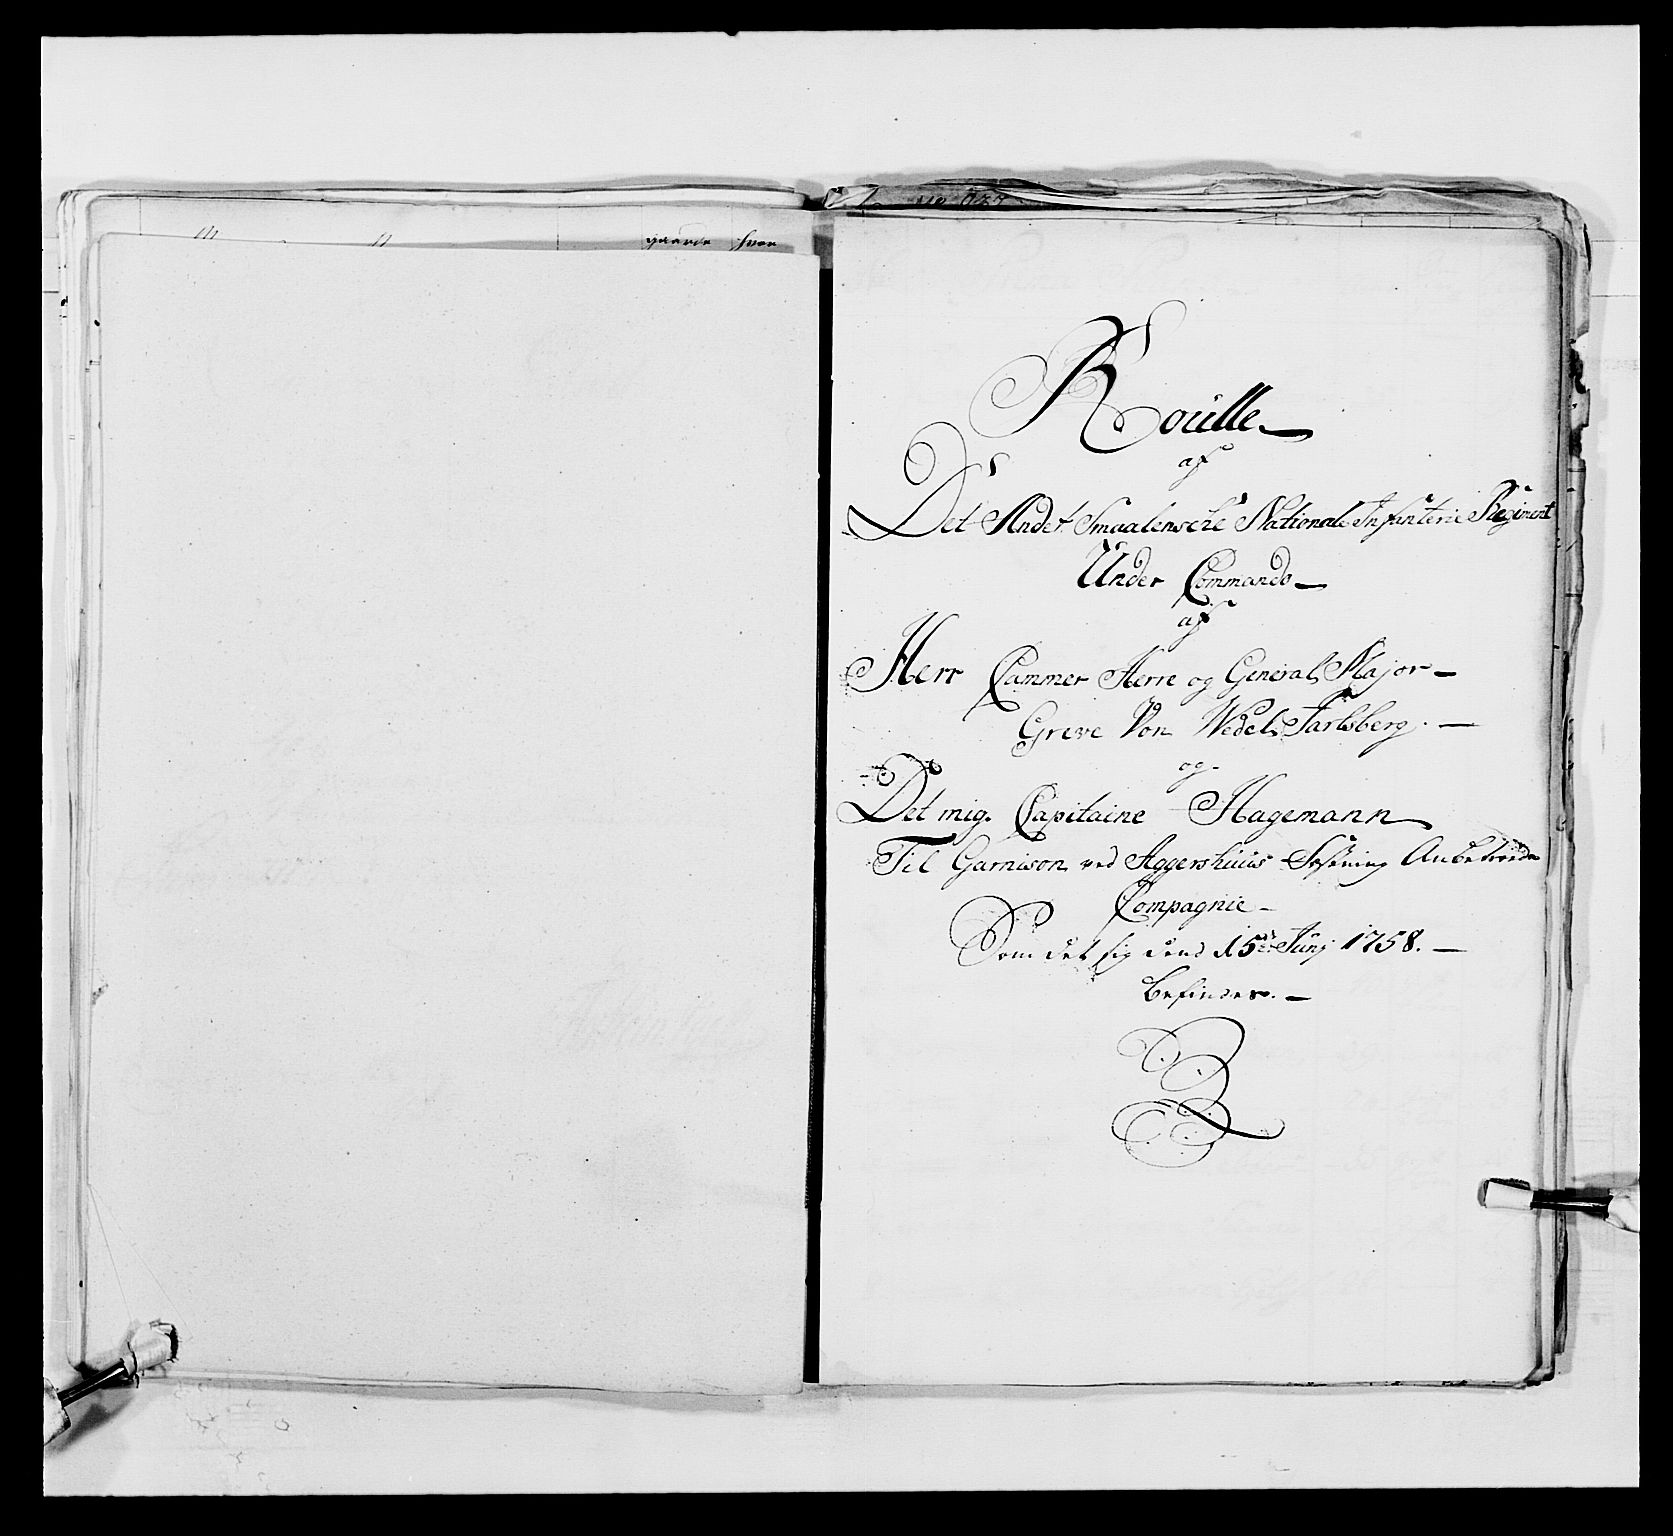 gaarde hvor
Roülle
af
Det Andet Smaalensche Nationale Infanterie Regiment
Under Commando
af
Herr Cammer Herre og General Major
Greve Von Wedel Jarlsberg.
og
Det mig Capitaine Hagemann
Til Garnison ved Aggershüüs Festning Anbetroede
Compagnie
Som det sig dend 15de Junj 1758.
befinder.